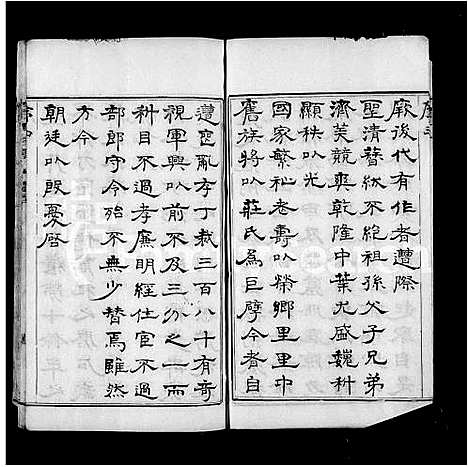 厥後代有作者遭際
聖清簪紱不絕祖孫父子兄弟
濟美競爽乾隆中葉尤盛巍科
顯秩以光
國家繁祉耆壽以榮鄉里里中
舊族將以莊氏為巨擘今者自
遭寇亂存丁裁三百八十有奇
視軍興以前不及三分之一而
科目不過孝廉明經仕宦不過
部郎守令殆不無少替焉雖然
方今
朝廷以殷憂啓